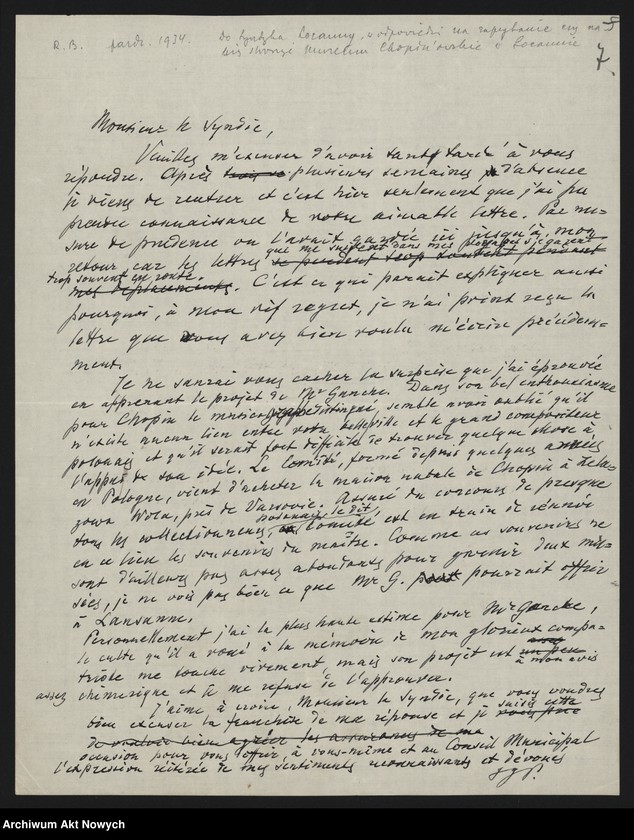 R. B. paźdz. 1934. Do Syndyka Lozanny, w odpowiedzi na zapytanie czy ma
się tworzyć Muzeum Chopin'owskie w Lozannie
7.
Monsieur le Syndic,
Veuillez m'excuser d'avoir tant tardé à vous
répondre. Après plusieurs semaines d'absence
je viens de rentrer et c'est hier seulement que j'ai pu
prendre connaissance de votre aimable lettre. Par me-
sure de prudence on l'avait gardée ici jusqu'à mon
retour car les lettres se perdent trop souvent pendant
trop souvent en route.
mes déplacements. C'est ce qui paraît expliquer aussi
pourquoi, à mon vif regret, je n'ai point reçu la
lettre que vous avez bien voulu m'écrire précédem-
ment.
Je ne saurai vous cacher la surprise que j'ai éprouvée
en apprenant le projet de Mr Ganche. Dans son bel enthousiasme
pour Chopin le musicien, semble avoir oublié qu'il
n'existe aucun lien entre votre belle ville et le grand compositeur
polonais et qu'il serait fort difficile de trouver quelque chose à
l'appui de son idée. Le Comité, formé depuis quelques années
en Pologne, vient d'acheter la maison natale de Chopin à Żela-
zowa Wola, près de Varsovie. Assuré du concours de presque
tous les collectionneurs, le dit Comité, est en train de réunir
en ce lieu les souvenirs du maître. Comme ces souvenirs ne
sont d'ailleurs pas assez abondants pour garnir deux mu-
sées, je ne vois pas bien ce que Mr G. pourrait offrir
à Lausanne.
Personnellement j'ai la plus haute estime pour Mr Ganche,
le culte qu'il a voué à la mémoire de mon glorieux compa-
triote me touche vivement mais son projet est un peu
à mon avis
assez chimérique et je me refuse de l'approuver.
J'aime à croire, Monsieur le Syndic, que vous voudrez
bien excuser la franchise de ma réponse et je saisis cette
de vouloir bien agréer les assurances de ma
occasion pour vous offrir, à vous-même et au Conseil Municipal
l'expression réitérée de mes sentiments reconnaissants et dévoués
Archiwum Akt Nowych